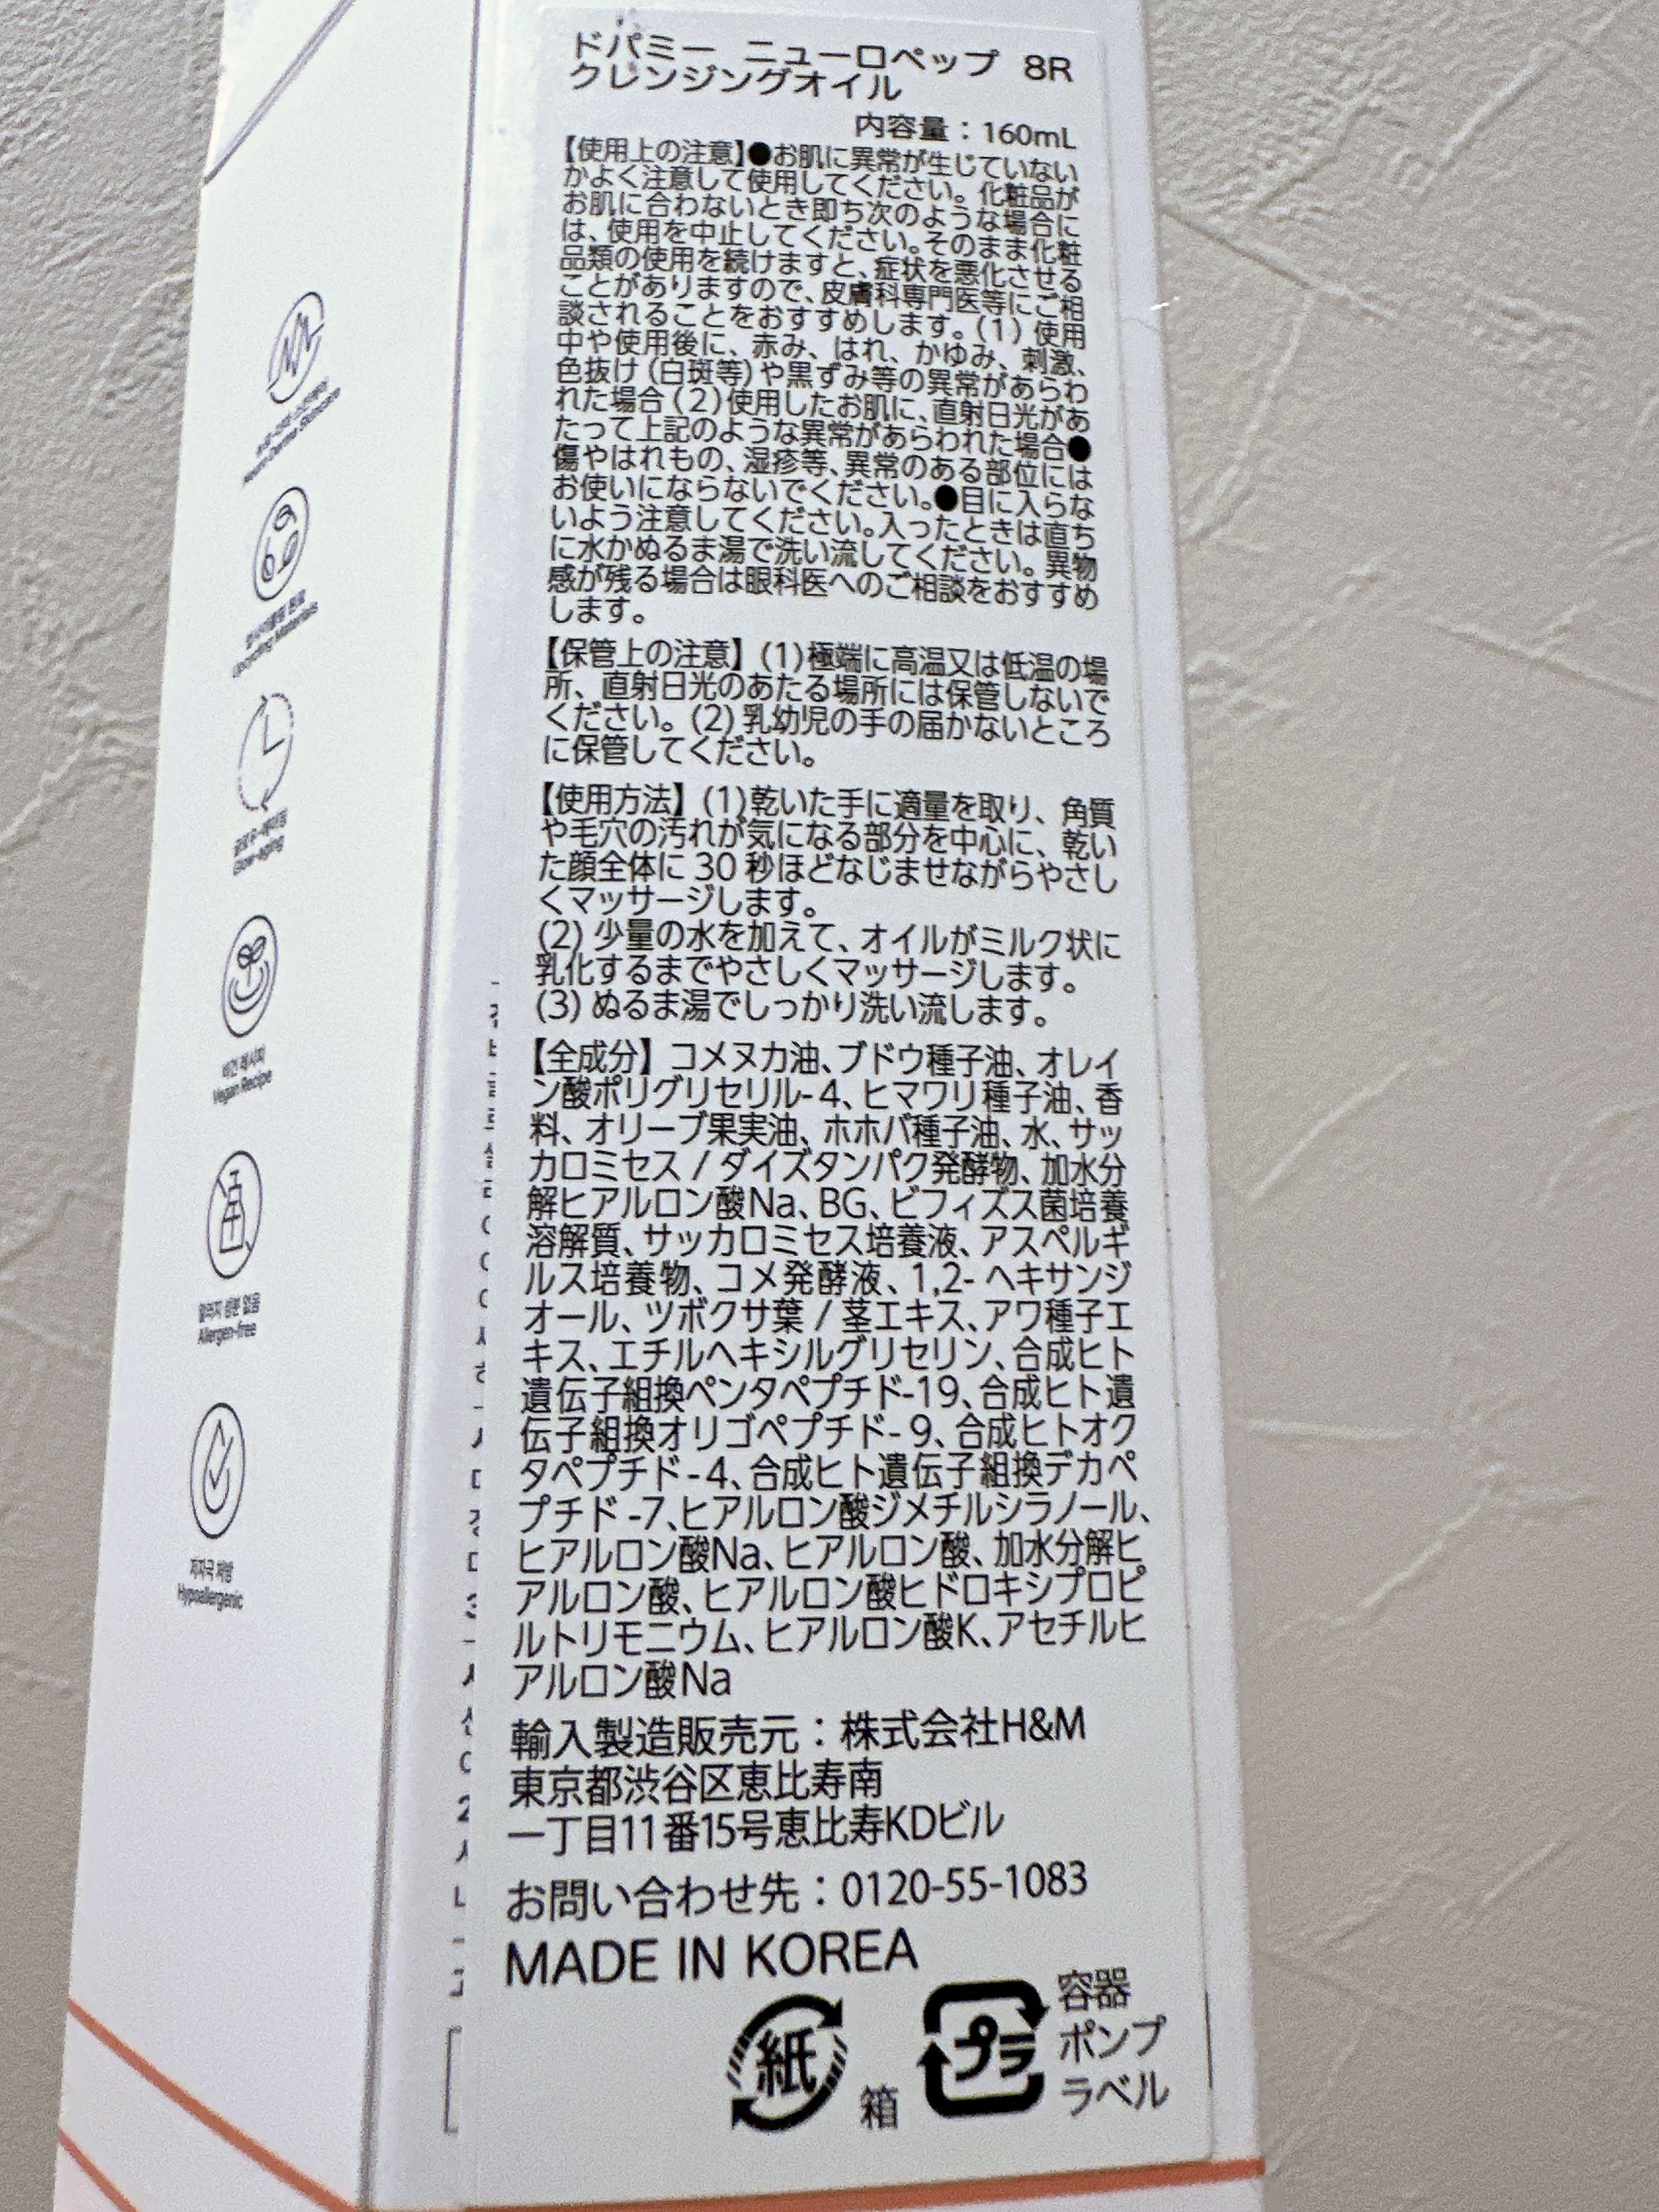 ドパミー ニューロペップ 8R
クレンジングオイル
内容量：160mL
【使用上の注意】●お肌に異常が生じていない
かよく注意して使用してください。化粧品が
お肌に合わないとき即ち次のような場合に
は、使用を中止してください。そのまま化粧
品類の使用を続けますと、症状を悪化させる
ことがありますので、皮膚科専門医等にご相
談されることをおすすめします。(1) 使用
中や使用後に、赤み、はれ、かゆみ、刺激、
色抜け（白斑等）や黒ずみ等の異常があらわ
れた場合 (2)使用したお肌に、直射日光があ
たって上記のような異常があらわれた場合●
傷やはれもの、湿疹等、異常のある部位には
お使いにならないでください。●目に入らな
いよう注意してください。入ったときは直ち
に水かぬるま湯で洗い流してください。異物
感が残る場合は眼科医へのご相談をおすすめ
します。
【保管上の注意】(1)極端に高温又は低温の場
所、直射日光のあたる場所には保管しないで
ください。(2) 乳幼児の手の届かないところ
に保管してください。
【使用方法】(1)乾いた手に適量を取り、角質
や毛穴の汚れが気になる部分を中心に、乾い
た顔全体に 30 秒ほどなじませながらやさし
くマッサージします。
(2) 少量の水を加えて、オイルがミルク状に
乳化するまでやさしくマッサージします。
(3) ぬるま湯でしっかり洗い流します。
【全成分】コメヌカ油、ブドウ種子油、オレイ
ン酸ポリグリセリル-4、ヒマワリ種子油、香
料、オリーブ果実油、ホホバ種子油、水、サッ
カロミセス / ダイズタンパク発酵物、加水分
解ヒアルロン酸Na、BG、ビフィズス菌培養
溶解質、サッカロミセス培養液、アスペルギ
ルス培養物、コメ発酵液、1,2- ヘキサンジ
オール、ツボクサ葉 / 茎エキス、アワ種子エ
キス、エチルヘキシルグリセリン、合成ヒト
遺伝子組換ペンタペプチド-19、合成ヒト遺
伝子組換オリゴペプチド-9、合成ヒトオク
タペプチド-4、合成ヒト遺伝子組換デカペ
プチド-7、ヒアルロン酸ジメチルシラノール、
ヒアルロン酸Na、ヒアルロン酸、加水分解ヒ
アルロン酸、ヒアルロン酸ヒドロキシプロピ
ルトリモニウム、ヒアルロン酸K、アセチルヒ
アルロン酸Na
輸入製造販売元：株式会社H&M
東京都渋谷区恵比寿南
一丁目11番15号恵比寿KDビル
お問い合わせ先：0120-55-1083
MADE IN KOREA
紙
箱
プラ
容器
ポンプ
ラベル
Glow-aging
비건 레시피
Vegan Recipe
알러지 성분 없음
Allergen-free
저자극 처방
Hypoallergenic